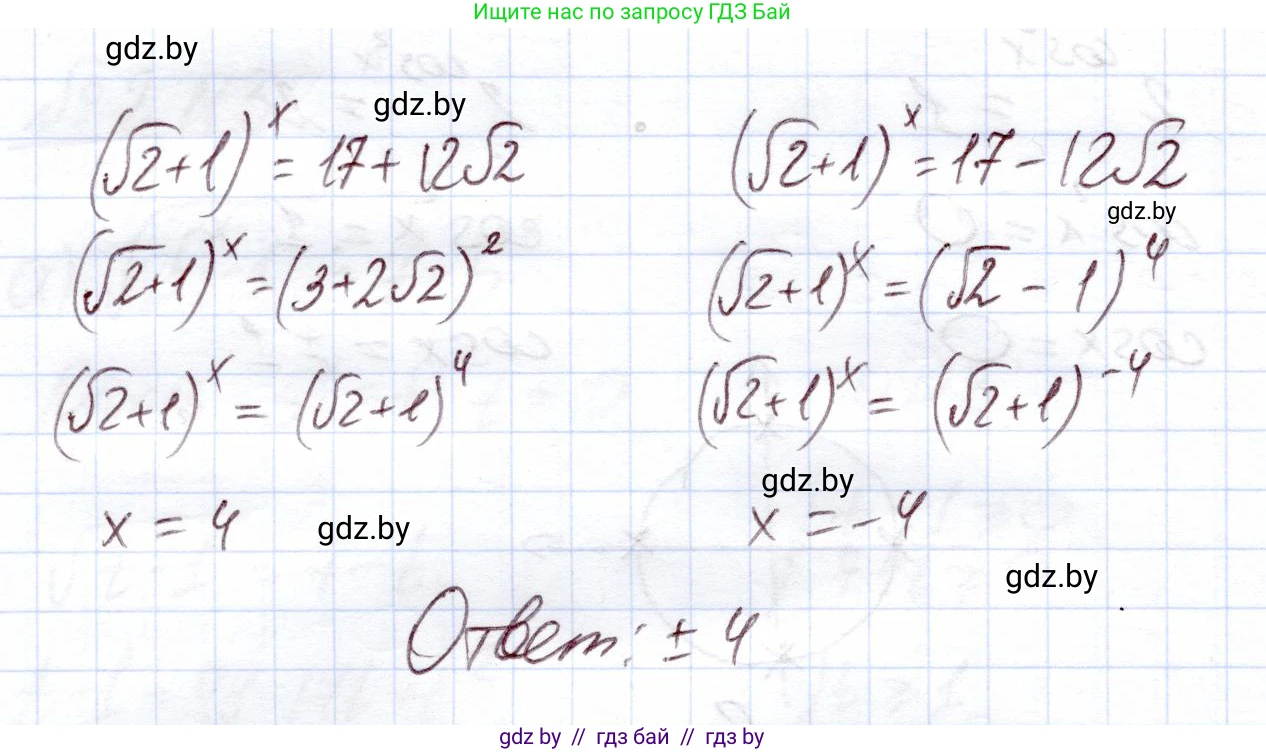 Ищите нас по запросу ГДЗ Бай
gdz.by
gdz.by
(√2+1)^x = 17+12√2
(√2+1)^x = 17-12√2
gdz.by
(√2+1)^x = (3+2√2)^2
(√2+1)^x = (√2-1)^4
(√2+1)^x = (√2+1)^4
(√2+1)^x = (√2+1)^-4
gdz.by
x = 4
gdz.by
x = -4
gdz.by
Ответ: ± 4
gdz.by // гдз бай // гдз by